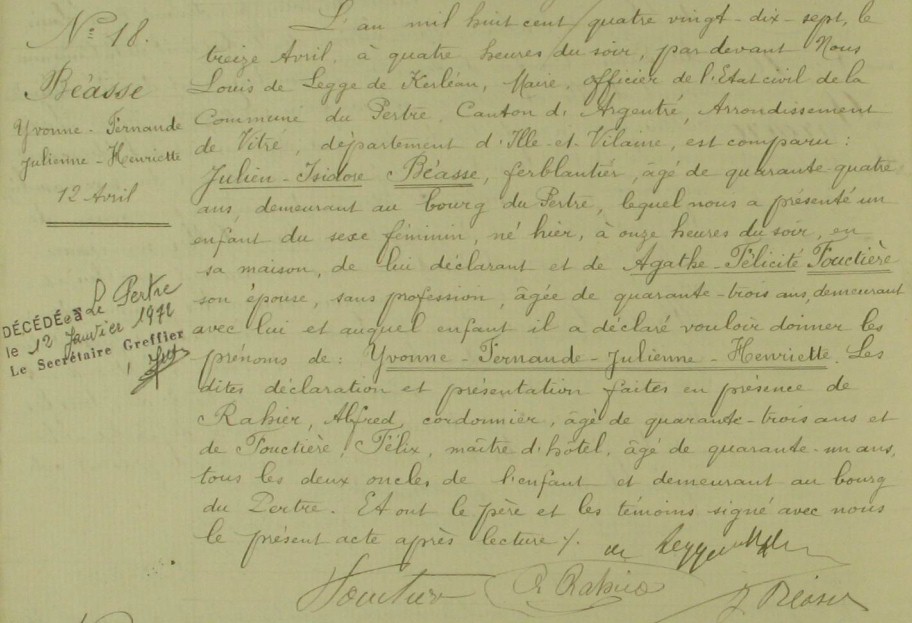 N° 18.
Béasse
Yvonne - Fernande
Julienne - Henriette
12 Avril
DÉCÉDÉe à Le Pertre
le 12 Janvier 19
Le Secrétaire Greffier
L'an mil huit cent quatre vingt-dix-sept, le
treize Avril, à quatre heures du soir, par devant Nous
Louis de Legge de Kerléan, Maire, officier de l'Etat civil de la
Commune du Pertre, Canton d'Argentré, Arrondissement
de Vitré, département d'Ille-et-Vilaine, est comparu :
Julien-Isidore Béasse, ferblantier, âgé de quarante-quatre
ans, demeurant au bourg du Pertre, lequel nous a présenté un
enfant du sexe féminin, né hier, à onze heures du soir, en
sa maison, de lui déclarant et de Agathe-Félicité Fouctière
son épouse, sans profession, âgée de quarante-trois ans, demeurant
avec lui et auquel enfant il a déclaré vouloir donner les
prénoms de : Yvonne-Fernande-Julienne-Henriette. Les
dites déclaration et présentation faites en présence de
Rahier, Alfred, cordonnier, âgé de quarante-trois ans et
de Fouctière, Félix, maître d'hôtel, âgé de quarante-un ans,
tous les deux oncles de l'enfant et demeurant au bourg
du Pertre. Et ont le père et les témoins signé avec nous
le présent acte après lecture ./.
Rahier
J Béasse